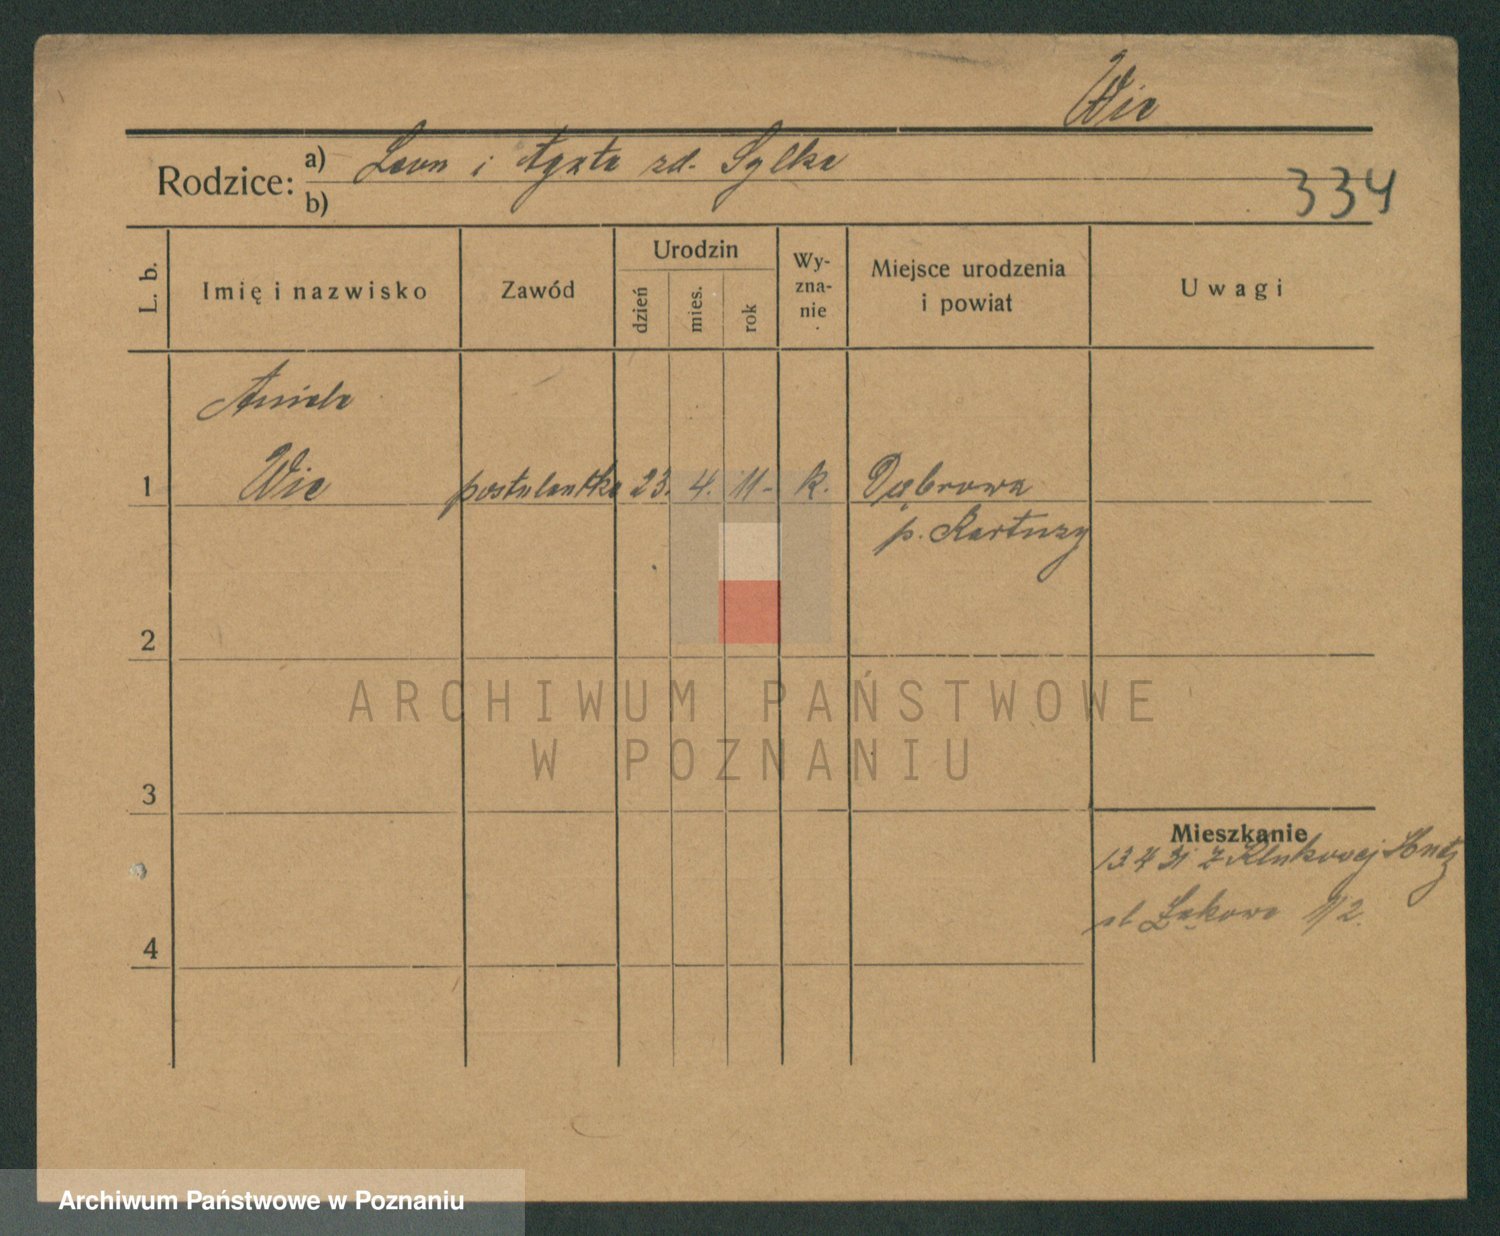 Wic
Rodzice: a) Leon i Agata zd. Sylka
b)
334
L. b. Imię i nazwisko Zawód Urodzin dzień mies. rok Wyznanie Miejsce urodzenia i powiat Uwagi
Aniela
1 Wic postulantka 23. 4. 11- k. Dąbrowa
p. Kartuzy
2
ARCHIWUM PAŃSTWOWE
W POZNANIU
3
Mieszkanie
13 4 31 z Klukowej Huty
ul Łąkowa 1/2
4
Archiwum Państwowe w Poznaniu